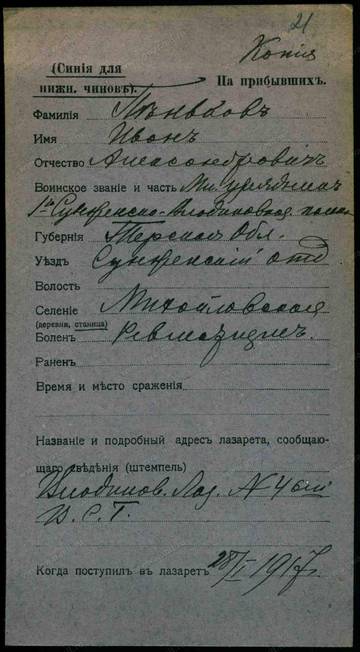 21
Копія
(Синія для
нижн. чиновъ).
На прибывшихъ.
Фамилія Пѣньковъ
Имя Иванъ
Отчество Александровичъ
Воинское званіе и часть Мл. урядникъ
1го Сунженско-Владикавказ. полка
Губернія Терская Обл.
Уѣздъ Сунженскій отд
Волость
Селеніе Михайловская
(деревня, станица)
Боленъ Ревматизмъ.
Раненъ
Время и мѣсто сраженія
Названіе и подробный адресъ лазарета, сообщаю-
щаго свѣдѣнія (штемпель)
Владикав. Лаз. №4
В. С. Г.
Когда поступилъ въ лазаретъ 28/I 1917г.